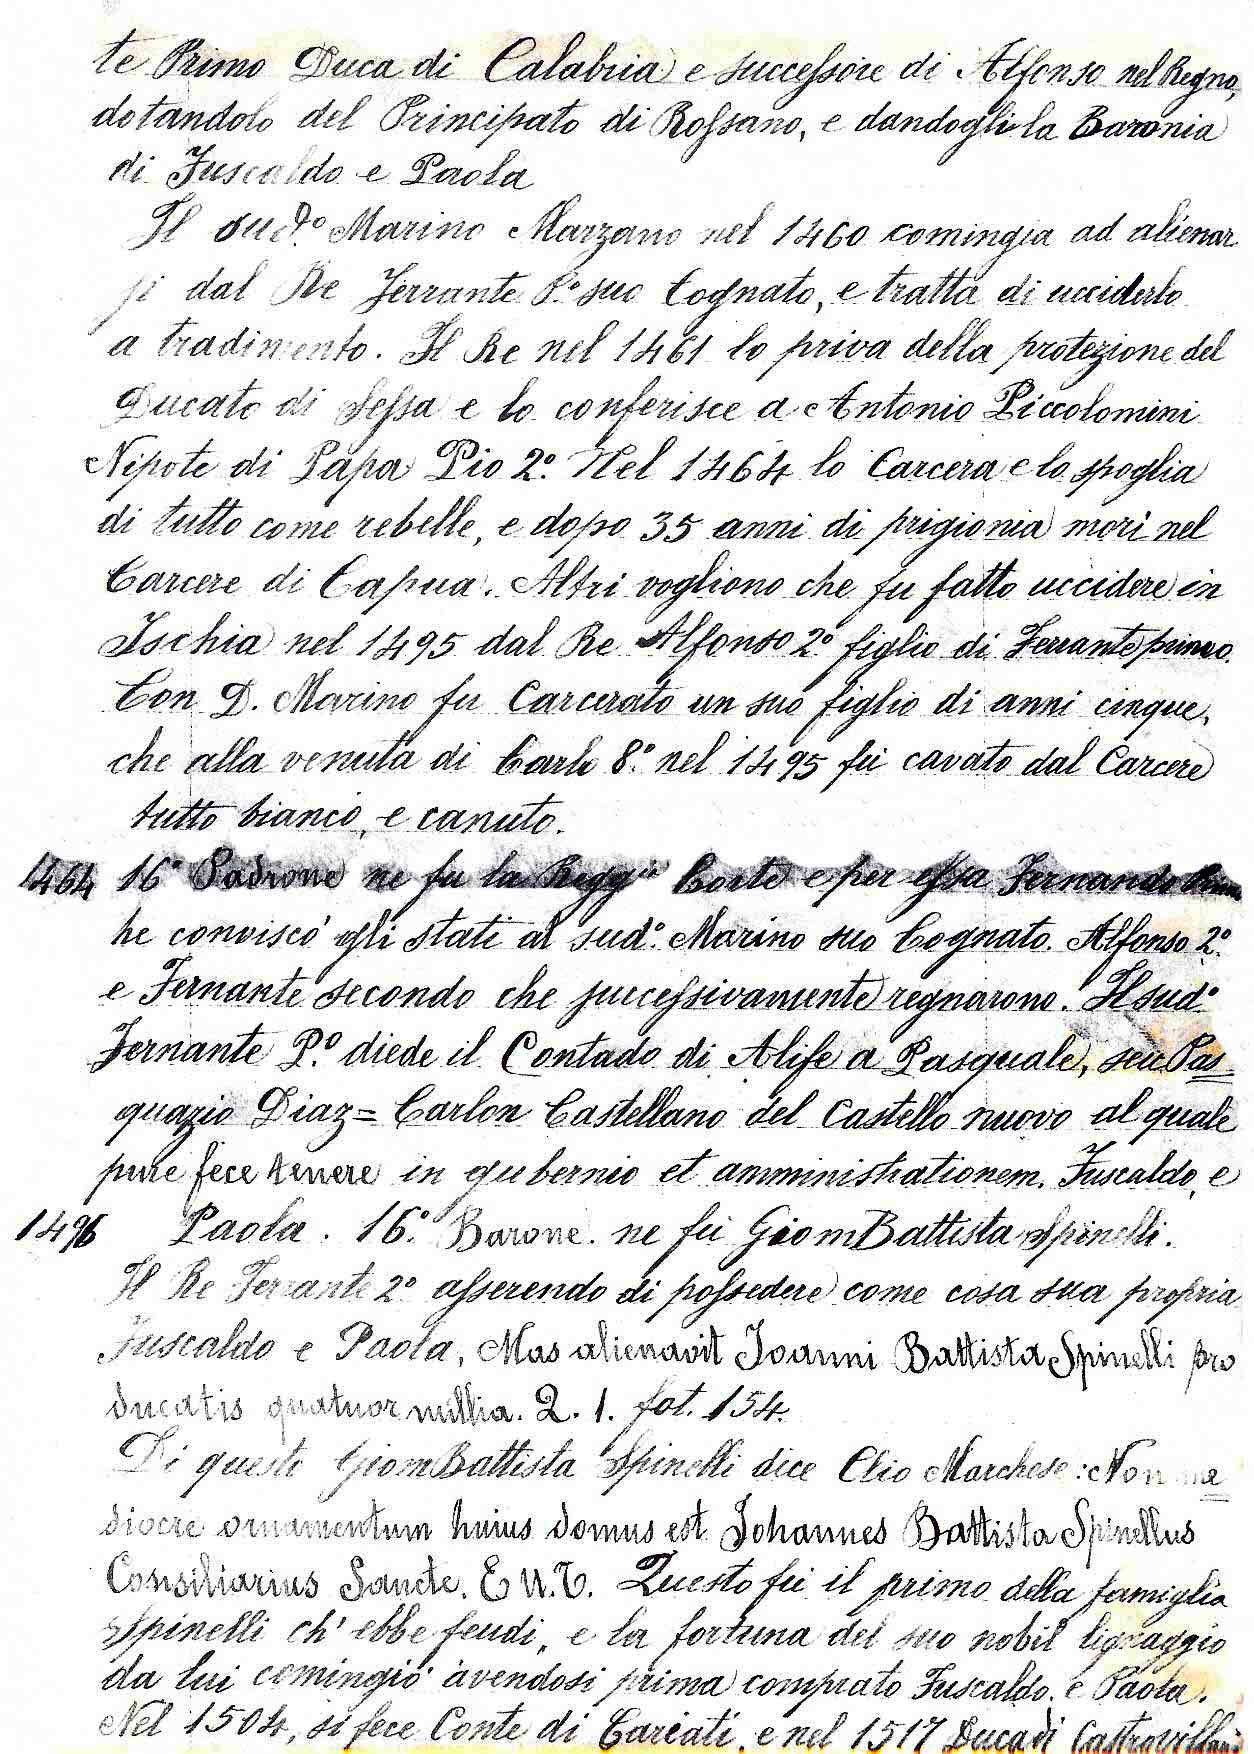 te Primo Duca di Calabria e successore di Alfonso nel Regno,
dotandolo del Principato di Rossano, e dandogli la Baronia
di Fuscaldo e Paola
Il sud.o Marino Marzano nel 1460 comingia ad alienar
si dal Re Ferrante P.o suo Cognato, e tratta di ucciderlo
a tradimento. Il Re nel 1461 lo priva della protezione del
Ducato di Sessa e lo conferisce a Antonio Piccolomini
Nipote di Papa Pio 2.o Nel 1464 lo Carcera e lo spoglia
di tutto come rebelle, e dopo 35 anni di prigionia morì nel
Carcere di Capua. Altri vogliono che fu fatto uccidere in
Ischia nel 1495 dal Re Alfonso 2o figlio di Ferrante primo.
Con D. Marino fu Carcerato un suo figlio di anni cinque,
che alla venuta di Carlo 8.o nel 1495 fù cavato dal Carcere
tutto bianco, e canuto.
1464 16o Padrone ne fu la Reggia Corte e per essa Fernando
he conviscò gli stati al sud.o Marino suo Cognato. Alfonso 2.o
e Fernante secondo che successivamente regnarono. Il sud.o
Fernante P.o diede il Contado di Alife a Pasquale, seu Pas=
quazio Diaz=Carlon Castellano del Castello nuovo al quale
pure fece tenere in gubernio et amministrationem. Fuscaldo, e
1496 Paola. 16.o Barone. ne fù GiomBattista Spinelli.
Il Re Ferrante 2o asserendo di possedere come cosa sua propria
Fuscaldo e Paola, Mas alienavit Joanni Battista Spinelli pro
ducatis quatuor millia. 2. 1. fot. 154.
Di questi GiomBattista Spinelli dice Clio Marchese: Non me=
diocre ornamentum huius domus est Johannes Battista Spinellus
Consiliarius Sancte. E U. T. Questo fù il primo della famiglia
Spinelli ch' ebbe feudi, e la fortuna del suo nobil lignaggio
da lui comingiò avendosi prima comprato Fuscaldo. e Paola.
Nel 1504, si fece Conte di Cariati, e nel 1517 Duca di Castrovillari